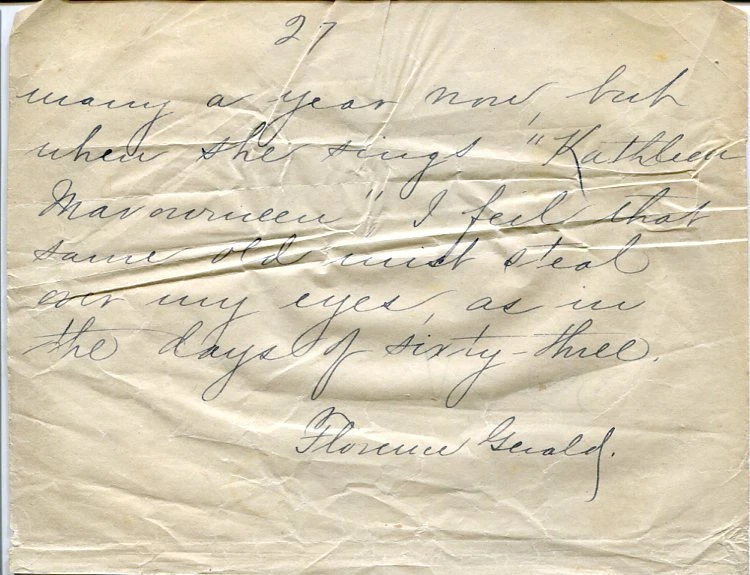 27
many a year now, but
when she sings "Kathleen
Mavourneen" I feel that
same old mist steal
over my eyes, as in
the days of sixty-three.
Florence Gerald.